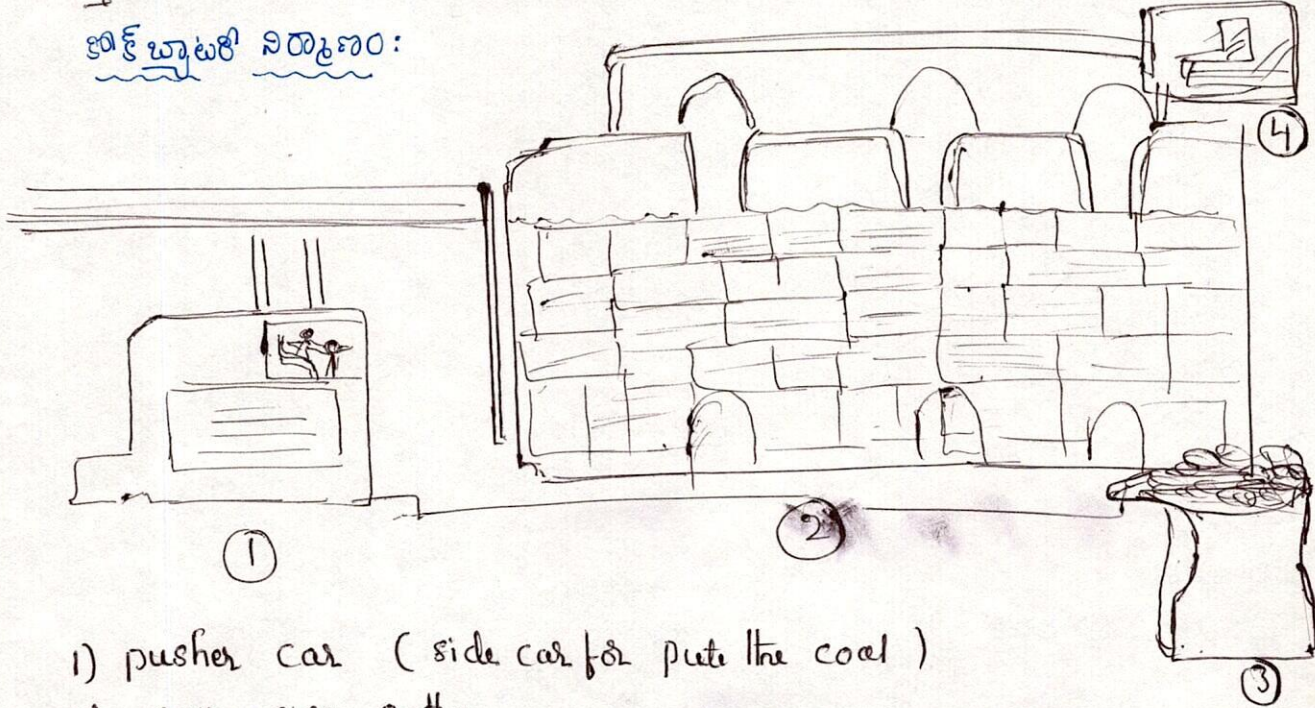 కోక్ బ్యాటరీ నిర్మాణం:
4
1
2
3
1) pusher car (side car for pute the coal)